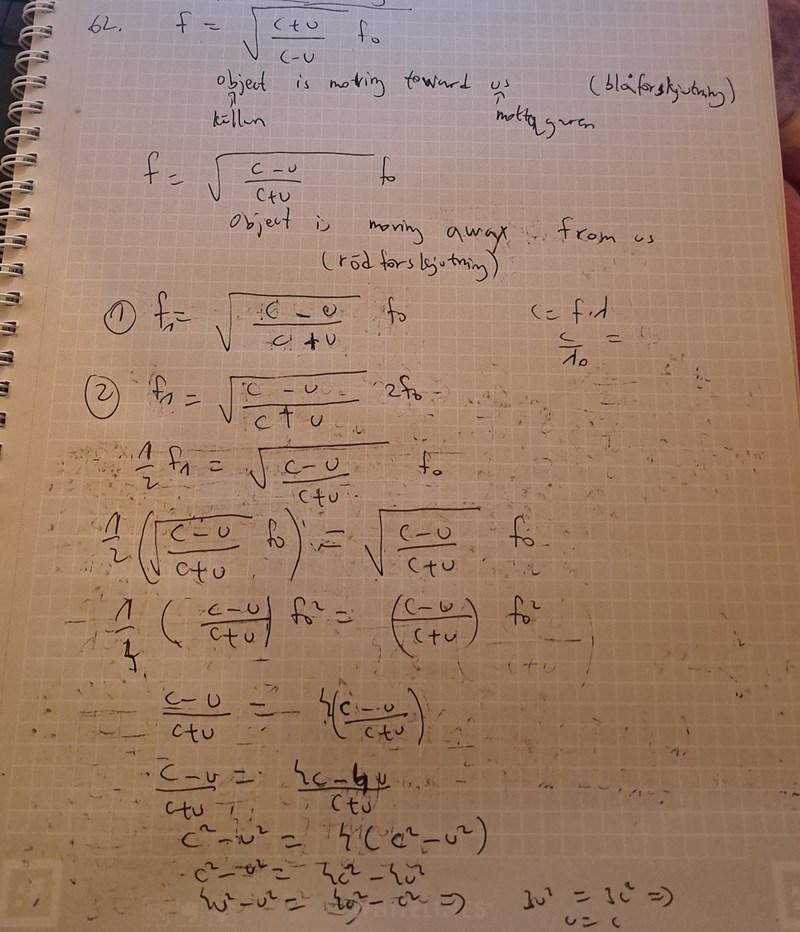 62. f = √((c+v)/(c-v)) f₀
object is moving toward us (blåförskjutning)
källan mottagaren
f = √((c-v)/(c+v)) f₀
object is moving away from us
(rödförskjutning)
① f₁ = √((c-v)/(c+v)) f₀ c = f·λ
c/λ₀ =
② f₁ = √((c-v)/(c+v)) 2f₀
1/2 f₁ = √((c-v)/(c+v)) f₀
1/2 (√((c-v)/(c+v)) f₀) = √((c-v)/(c+v)) f₀
1/4 ((c-v)/(c+v)) f₀² = ((c-v)/(c+v)) f₀²
(c-v)/(c+v) = 4((c-v)/(c+v))
(c-v)/(c+v) = (4c-4v)/(c+v)
c²-v² = 4(c²-v²)
c²-v² = 4c²-4v²
4v²-v² = 4c²-c² => 3v² = 3c² =>
v = c